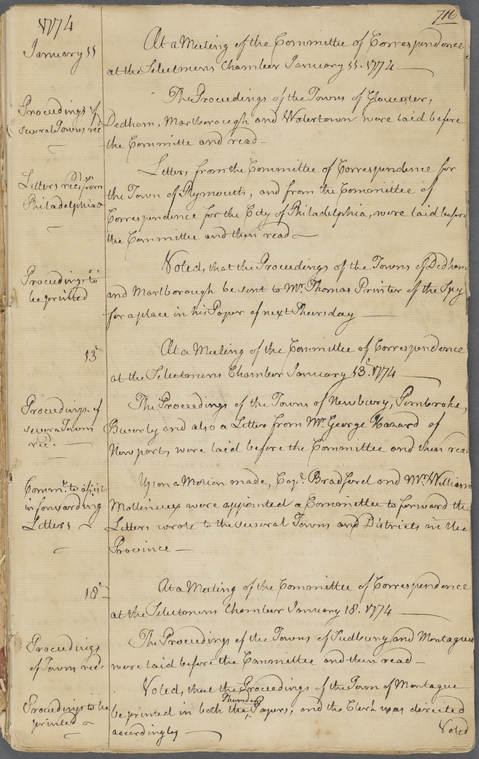 716
1774
January 11
At a Meeting of the Committee of Correspondence
at the Selectmens Chamber January 11. 1774
Proceedings of
several Towns rec.
The Proceedings of the Towns of Glocester,
Dedham, Marlborough and Watertown were laid before
the Committe and read
Letters rec. from
Philadelphia &
Letters from the Committee of Correspondence for
the Town of Plymouth, and from the Committee of
Correspondence for the City of Philadelphia, were laid before
the Committee and then read
Proceedings to
be printed
Voted, that the Proceedings of the Towns of Dedham
and Marlborough be sent to Mr. Thomas Printer of the Spy
for a place in his Paper of next Thursday
13
At a Meeting of the Committee of Correspondence
at the Selectmens Chamber January 13. 1774
Proceedings of
several Towns
rec.
The Proceedings of the Towns of Newbury, Pembroke,
Beverly and also a Letter from Mr. George Hazard of
Newport, were laid before the Committee and then read
Comm. to assist
in forwarding
Letters
Upon a Motion made, Cap. Bradford and Mr. William
Mollineux were appointed a Committee to forward the
Letters wrote to the several Towns and Districts in the
Province
18
At a Meeting of the Committee of Correspondence
at the Selectmens Chamber January 18. 1774
Proceedings
of Towns rec.
The Proceedings of the Towns of Sudbury and Montague
were laid before the Committee and then read
Proceedings to be
printed
Voted, that the Proceedings of the Town of Montague
be printed in both the Thursday Papers, and the Clerk was directed
accordingly
Voted